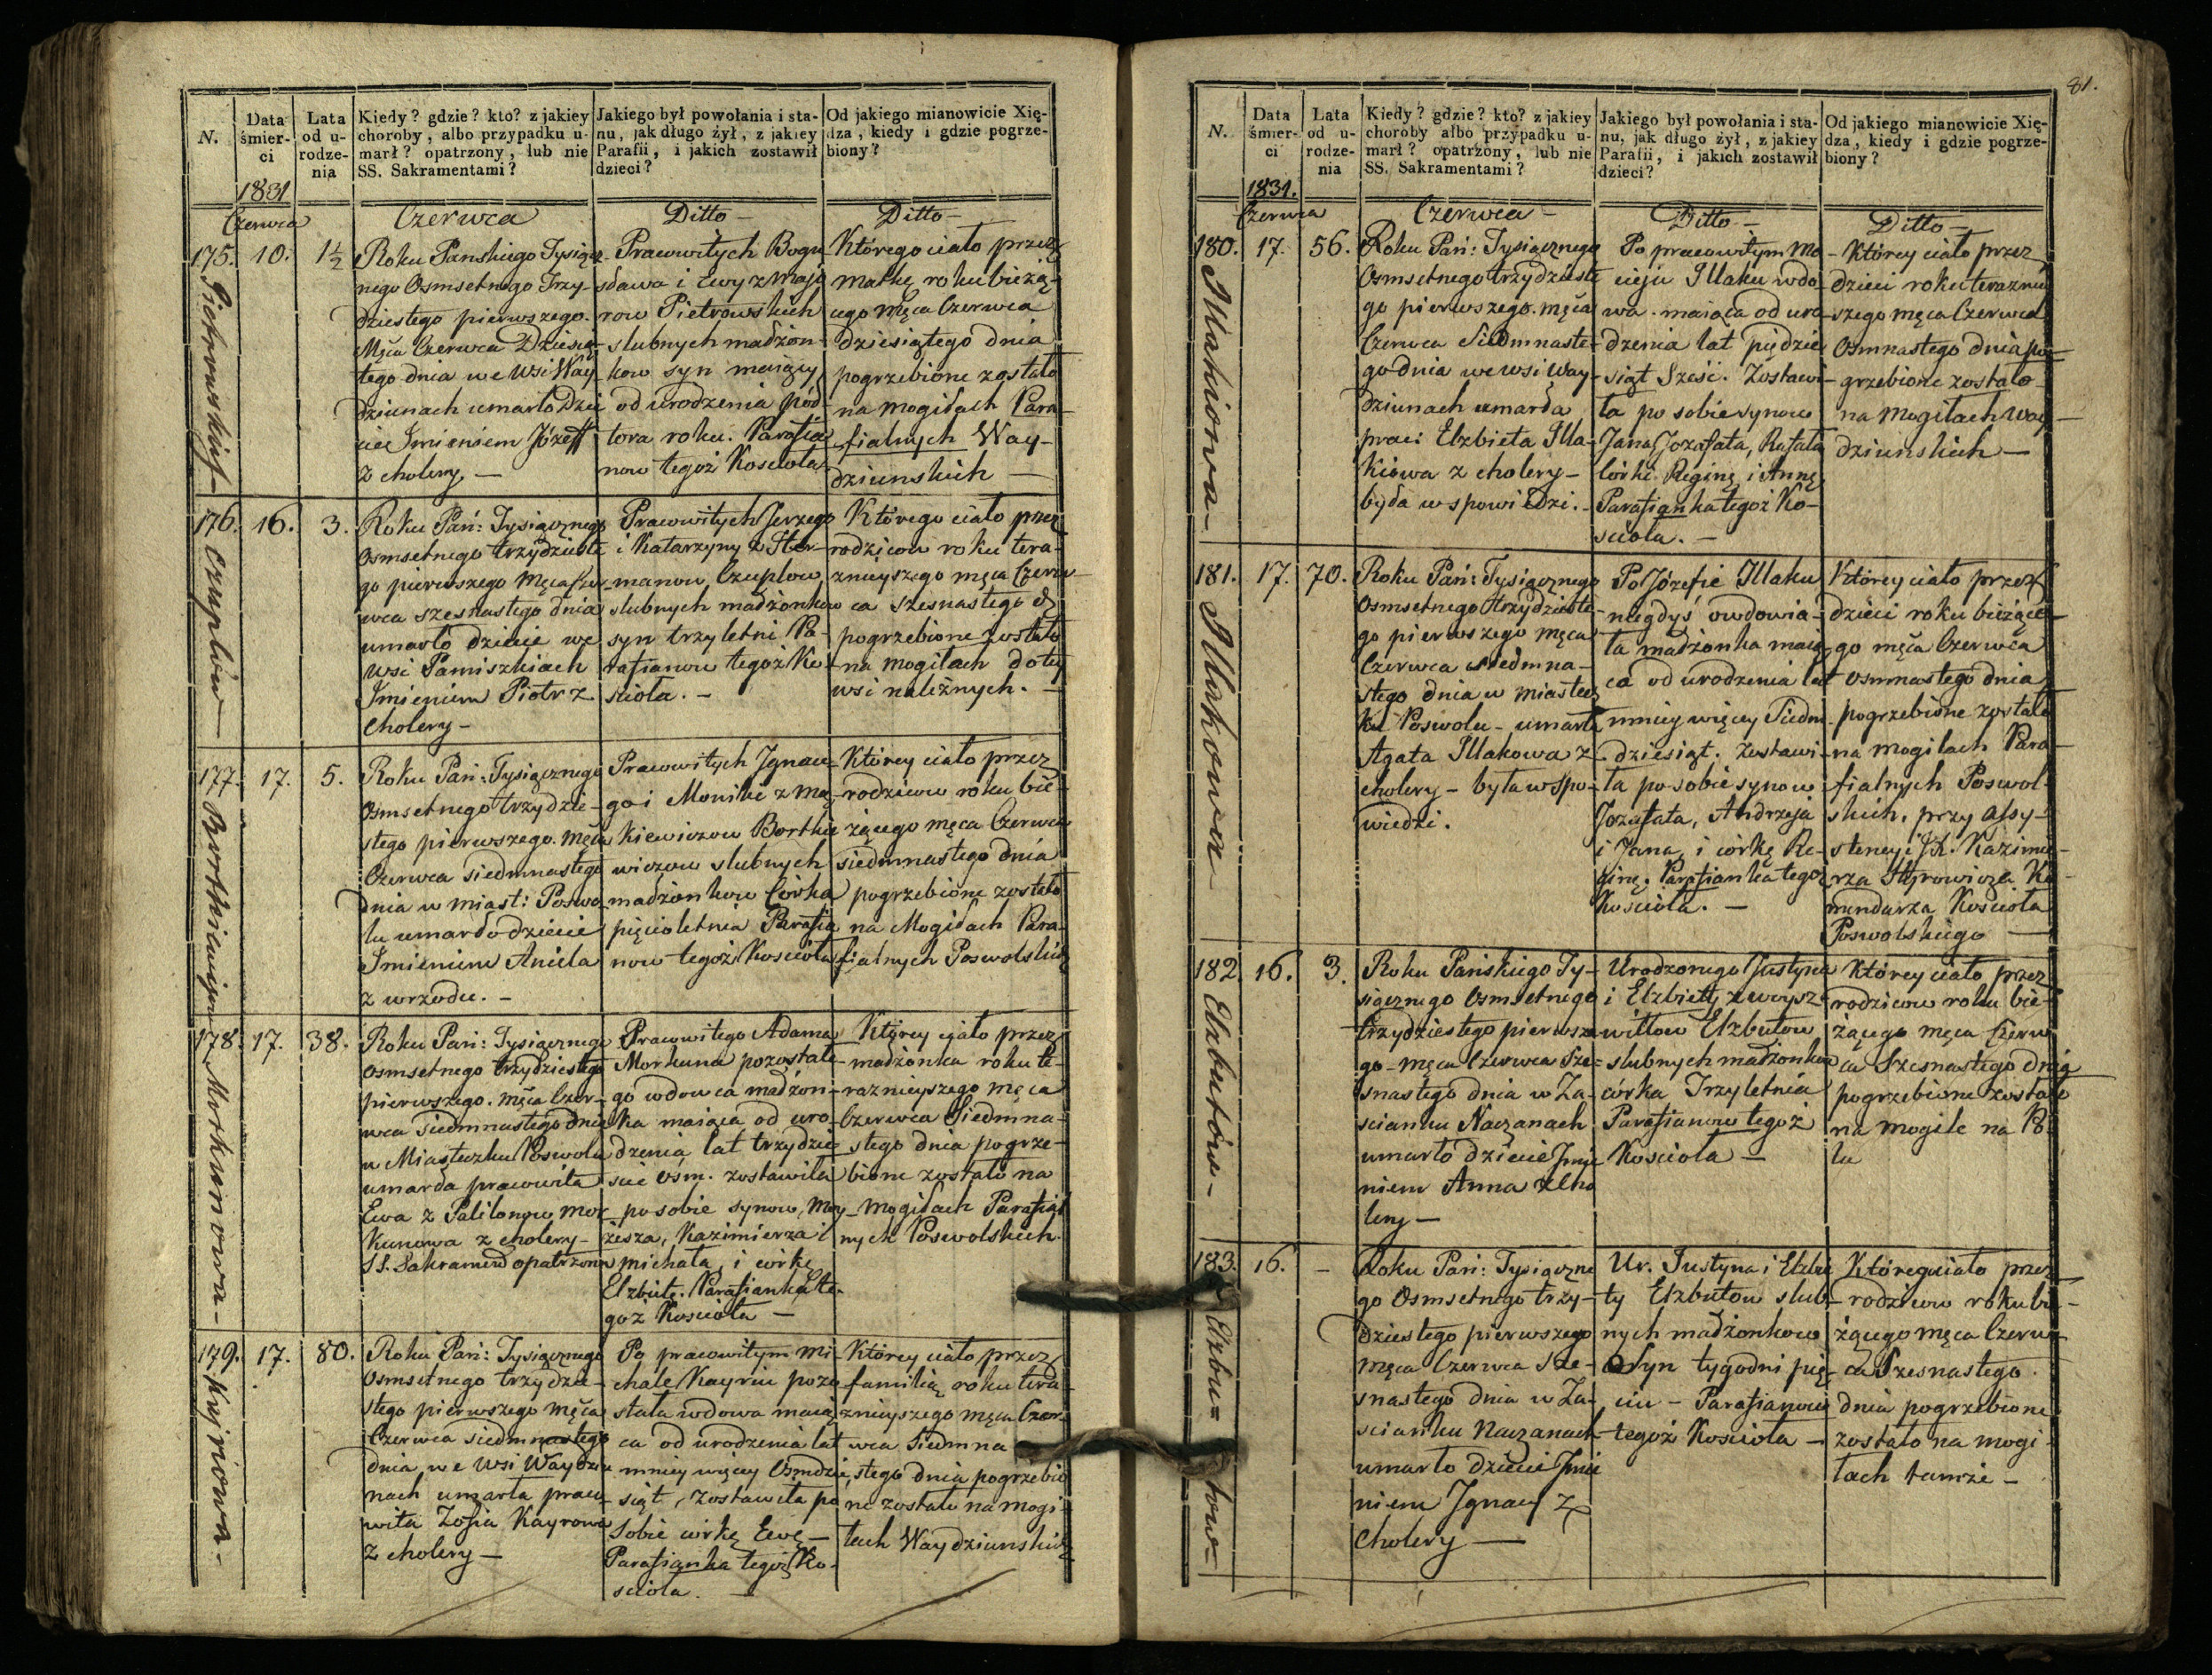 N.
Data śmier-ci
1831
Lata od u-rodze-nia
Kiedy? gdzie? kto? z jakiey
choroby, albo przypadku u-
marł? opatrzony, lub nie
SS. Sakramentami?
Jakiego był powołania i sta-
nu, jak długo żył, z jakiey
Parafii, i jakich zostawił
dzieci?
Od jakiego mianowicie Xię-
dza, kiedy i gdzie pogrze-
biony?
Czerwca
Czerwca
Ditto -
Ditto -
175.
Piotrowskich
10.
1½
Roku Panskiego Tysiącz-
nego Osmsetnego Trzy-
dziestego pierwszego.
Mca Czerwca Dziesią-
tego dnia we Wsi Way-
dziunach umarło Dzie
cie Imieniem Józeff
z cholery. -
Pracowitych Bogu
sława i Ewy z Majo
row Pietrowskich
slubnych małżon-
kow syn maiący
od urodzenia pół-
tora roku. Parafia
now tegoż Koscioła
Którego ciało przez
matkę roku bieżą-
cego Męca Czerwca
dziesiątego dnia
pogrzebione zostało
na mogiłach Para-
fialnych Way-
dziunskich -
176.
Czuplów
16.
3.
Roku Pań: Tysiącznego
Osmsetnego trzydzieste
go pierwszego Męca Czer-
wca szesnastego dnia
umarło dziecie we
wsi Pamiszkiach
Imieniem Piotr z
cholery -
Pracowitych Jerzego
i Katarzyny z Ster-
manow Czuplow
slubnych małżonkow
syn trzyletni Pa-
rafianow tegoż Ko-
scioła. -
Którego ciało przez
rodzicow roku tera-
znieyszego męca Czerw-
ca szesnastego d
pogrzebione zostało
na mogiłach do tey
wsi należnych. -
177.
17.
5.
Roku Pań: Tysiącznego
Osmsetnego trzydzie-
stego pierwszego. męca
Czerwca siedmnastego
dnia w miast: Poswo-
lu umarło dziecie
Imieniem Aniela
z wrzodu. -
Pracowitych Ignace
go i Moniki z Mac
kiewiczow Bortkie
wiczow slubnych
małżonkow Córka
pięcioletnia Parafia
now tegoż Koscioła
Którey ciało przez
rodzicow roku bie-
żącego męca Czerwca
siedmnastego dnia
pogrzebione zostało
na Mogiłach Para-
fialnych Poswolskich
178.
Morkunowa -
17.
38.
Roku Pań: Tysiącznego
Osmsetnego trzydziestego
pierwszego. męca Czer-
wca siedmnastego dnia
w Miasteczku Poswolu
umarła pracowita
Ewa z Palilonow Mor
kunowa z cholery -
SS. Sakramend opatrzona
Pracowitego Adama
Morkuna pozostałe-
go wdowca małżon-
ka maiąca od uro-
dzenia lat trzydzie
scie osm. zostawiła
po sobie synow, Moy-
żesza, Kazimierza i
michała, i córkę
Elzbietę. Parafianka te-
goż Koscioła -
Którey ciało przez
małżonka roku te-
raznieyszego męca
Czerwca Siedmna-
stego dnia pogrze-
bione zostało na
mogiłach Parafial
nych Poswolskich.
179.
Kajriowa -
17.
80.
Roku Pań: Tysiącznego
Osmsetnego trzydzie-
stego pierwszego męca
Czerwca siedmnastego
dnia we wsi Waydziu
nach umarła praco-
wita Zofia Kayrowa
z cholery -
Po pracowitym Mi-
chale Kayriu pozo
stała wdowa maią-
ca od urodzenia lat
mniey więcey Osmdzie
siąt, zostawiła po
sobie córkę Ewę -
Parafianka tegoż Ko-
scioła. -
Którey ciało przez
familią roku tera-
znieyszego męca Czer-
wca Siedmna
stego dnia pogrzebio
ne zostało na mogi-
łach Waydziunskich
81.
N.
Data śmier-ci
1831.
Lata od u-rodze-nia
Kiedy? gdzie? kto? z jakiey
choroby albo przypadku u-
marł? opatrzony, lub nie
SS. Sakramentami?
Jakiego był powołania i sta-
nu, jak długo żył, z jakiey
Parafii, i jakich zostawił
dzieci?
Od jakiego mianowicie Xię-
dza, kiedy i gdzie pogrze-
biony?
Czerwca
Czerwca -
Ditto -
Ditto -
180.
Illakiowa -
17.
56.
Roku Pań: Tysiącznego
Osmsetnego trzydzieste
go pierwszego. męca
Czerwca Siedmnaste-
go dnia we wsi Way-
dziunach umarła
praci Elzbieta Illa-
kiowa z cholery -
była w spowiedzi. -
Po pracowitym Ma
cieju Illaku wdo-
wa. maiąca od uro
dzenia lat pięćdzie
siąt Szesć. Zostawi-
ła po sobie synow
Jana, Jozafata, Rafała
Córki Reginę i Annę
Parafianka tegoż Ko-
scioła. -
Którey ciało przez
dzieci roku teraznie
szego męca Czerwca
Osmnastego dnia po-
grzebione zostało
na Mogiłach Way-
dziunskich -
181.
Illakowa -
17.
70.
Roku Pań: Tysiącznego
Osmsetnego trzydzieste-
go pierwszego męca
Czerwca siedmna-
stego dnia w miastecz
ku Poswolu - umarła
Agata Illakowa z
cholery - była w spo-
wiedzi.
Po Józefie Illaku
niegdyś owdowia-
ła małżonka maią-
ca od urodzenia lat
mniey więcey Siedm-
dziesiąt. zostawi-
ła po sobie synow
Jozafata, Andrzeja
i Jana, i córkę Re-
ginę. Parafianka tegoż
Koscioła. -
Którey ciało przez
dzieci roku bieżące-
go męca Czerwca
osmnastego dnia
pogrzebione zostało
na mogiłach Para-
fialnych Poswol-
skich, przy assy-
stencyi JX. Kazimie-
rza Ko-
mendarza Koscioła
Poswolskiego -
182.
Elzbutów -
16.
3.
Roku Pańskiego Ty-
siącznego Osmsetnego
trzydziestego pierwsze
go - męca Czerwca Sze-
snastego dnia w Za-
scianku Naczanach
umarło dziecie Imie
niem Anna z cho
lery -
Urodzonego Justyna
i Elzbiety z woysz-
wiłłow Elzbutow
slubnych małżonkow
córka Trzyletnia
Parafianow tegoż
Koscioła -
Którey ciało przez
rodzicow roku bie-
żącego męca Czerw
ca Szesnastego dnia
pogrzebione zostało
na mogile na Po-
lu
183.
Elzbu=tow=
16.
-
Roku Pań: Tysiączne
go Osmsetnego trzy-
dziestego pierwszego
męca Czerwca Sze-
snastego dnia w Za-
scianku Naczanach
umarło dziecie Imie
niem Ignacy z
cholery -
Ur. Justyna i Elzbie
ty Elzbutow slub-
nych małżonkow
Syn tygodni pię-
ciu - Parafianow
tegoż Koscioła -
Którego ciało przez
rodzicow roku bie-
żącego męca Czerw-
ca Szesnastego
dnia pogrzebione
zostało na mogi-
łach tamże -